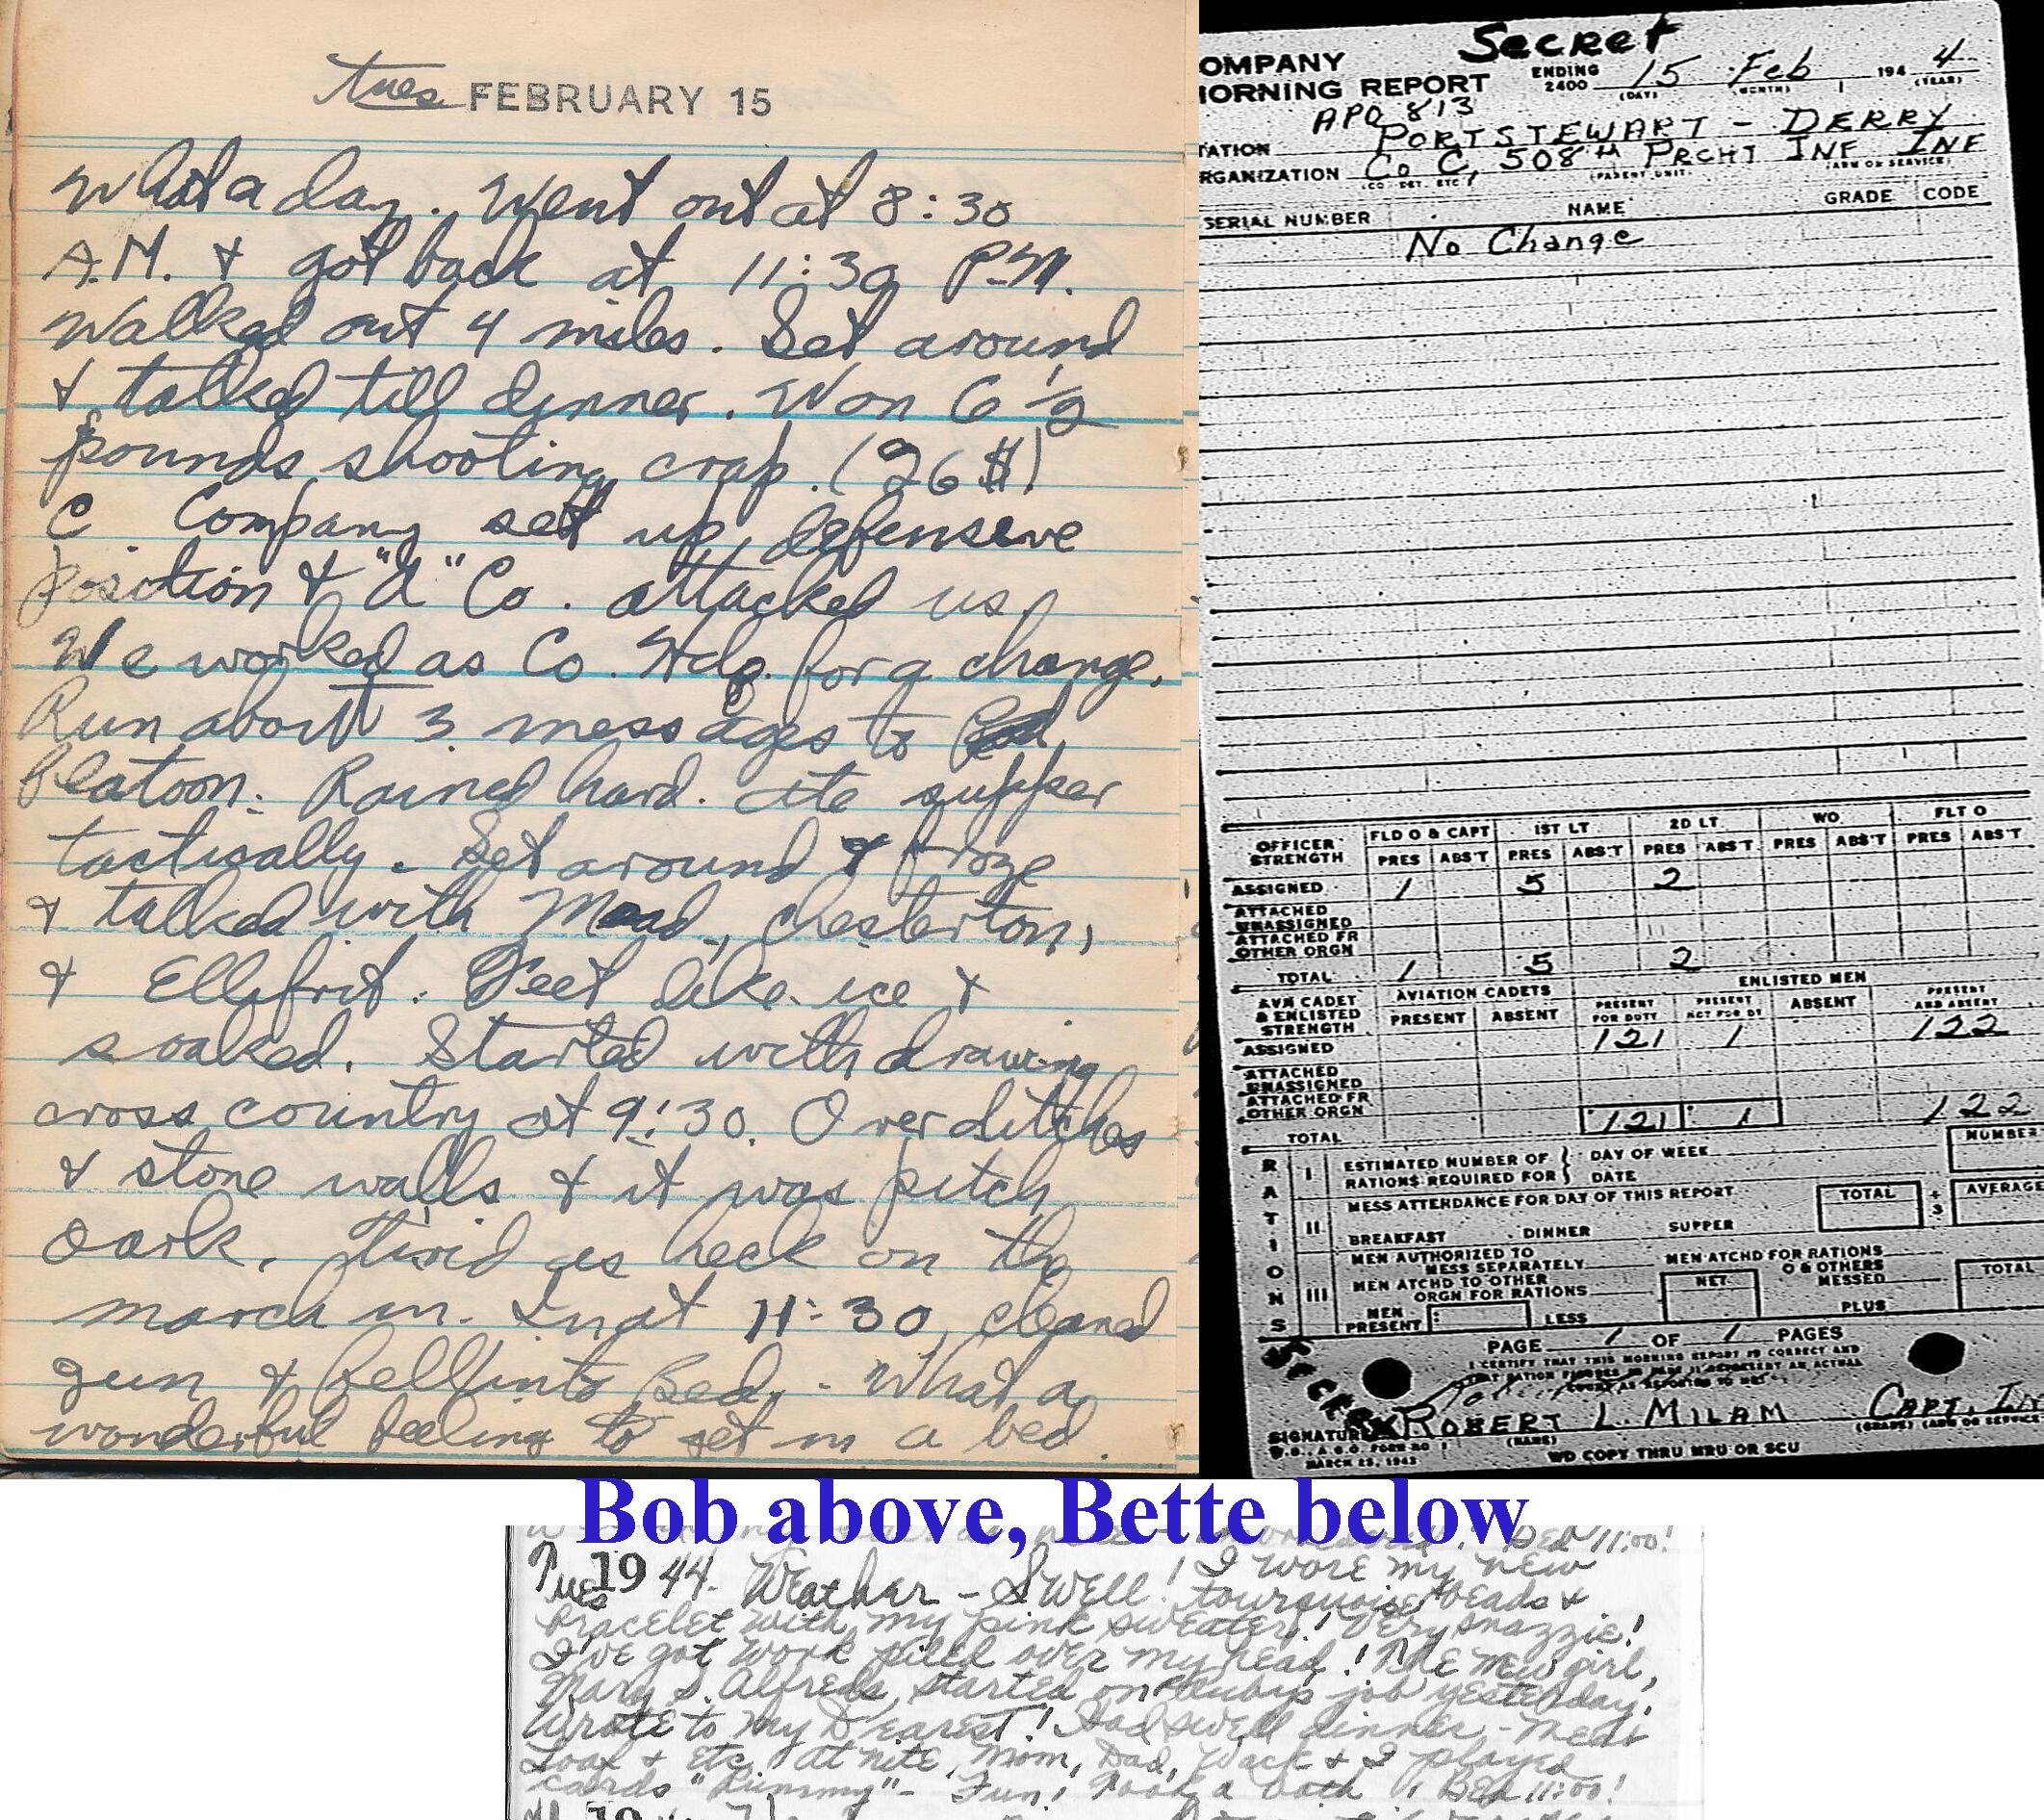 Tues FEBRUARY 15
What a day. Went out at 8:30
A.M. & got back at 11:30 P.M.
Walked out 4 miles. Set around
& talked till dinner. Won 6 1/2
pounds shooting crap. (26$)
C Company set up defensive
position & "A" Co. attacked us
We worked as Co. Hdq. for a change.
Run about 3 messages to
Platoon. Rained hard. Ate supper
tactically. Set around & froze
& talked with Mead, Chesterton,
& Ellifrit. Feet like ice &
soaked. Started withdrawing
cross country at 9:30. Over ditches
& stone walls & it was pitch
dark. Tired as heck on the
march in. In at 11:30, cleaned
gun & fell into Bed. What a
wonderful feeling to get in a bed.
Secret
OMPANY
MORNING REPORT ENDING 2400 15 Feb 194 4
(DAY) (MONTH) (YEAR)
APO 813
TATION PORTSTEWART - DERRY
RGANIZATION Co C, 508th PRCHT INF INF
(CO. DET. ETC.) (PARENT UNIT) (ARM OR SERVICE)
SERIAL NUMBER NAME GRADE CODE
No Change
OFFICER STRENGTH FLD O & CAPT 1ST LT 2D LT WO FLT O
PRES ABS'T PRES ABS'T PRES ABS'T PRES ABS'T PRES ABS'T
ASSIGNED 1 5 2
ATTACHED UNASSIGNED
ATTACHED FR OTHER ORGN
TOTAL 1 5 2
AVN CADET & ENLISTED STRENGTH AVIATION CADETS ENLISTED MEN
PRESENT ABSENT PRESENT FOR DUTY PRESENT NOT FOR DY ABSENT PRESENT AND ABSENT
ASSIGNED 121 1 122
ATTACHED UNASSIGNED
ATTACHED FR OTHER ORGN
TOTAL 121 1 122
RATIONS
I ESTIMATED NUMBER OF RATIONS REQUIRED FOR DAY OF WEEK DATE NUMBER
II MESS ATTENDANCE FOR DAY OF THIS REPORT TOTAL ÷ 3 AVERAGE
BREAKFAST DINNER SUPPER
III MEN AUTHORIZED TO MESS SEPARATELY MEN ATCHD FOR RATIONS
MEN ATCHD TO OTHER ORGN FOR RATIONS NET O & OTHERS MESSED TOTAL
MEN PRESENT LESS PLUS
PAGE 1 OF 1 PAGES
I CERTIFY THAT THIS MORNING REPORT IS CORRECT AND
SECRET
SIGNATURE ROBERT L. MILAM CAPT. INF
(NAME) (GRADE) (ARM OR SERVICE)
W.D., A.G.O. FORM NO 1
MARCH 25, 1943 WD COPY THRU MRU OR SCU
Bob above, Bette below
BED 11:00!
Tues 1944. Weather - Swell! I wore my new
tourquoise beads &
bracelet with my pink sweater! Very snazzie!
I've got work piled over my head! The new girl,
Mary S. Alfreds, started on Ruby's job yesterday.
Wrote to my Dearest! Had swell dinner - Meat
Loaf & etc. At nite, Mom, Dad, Wack & I played
cards "Rummy" - Fun! Took a bath. BED 11:00!
19